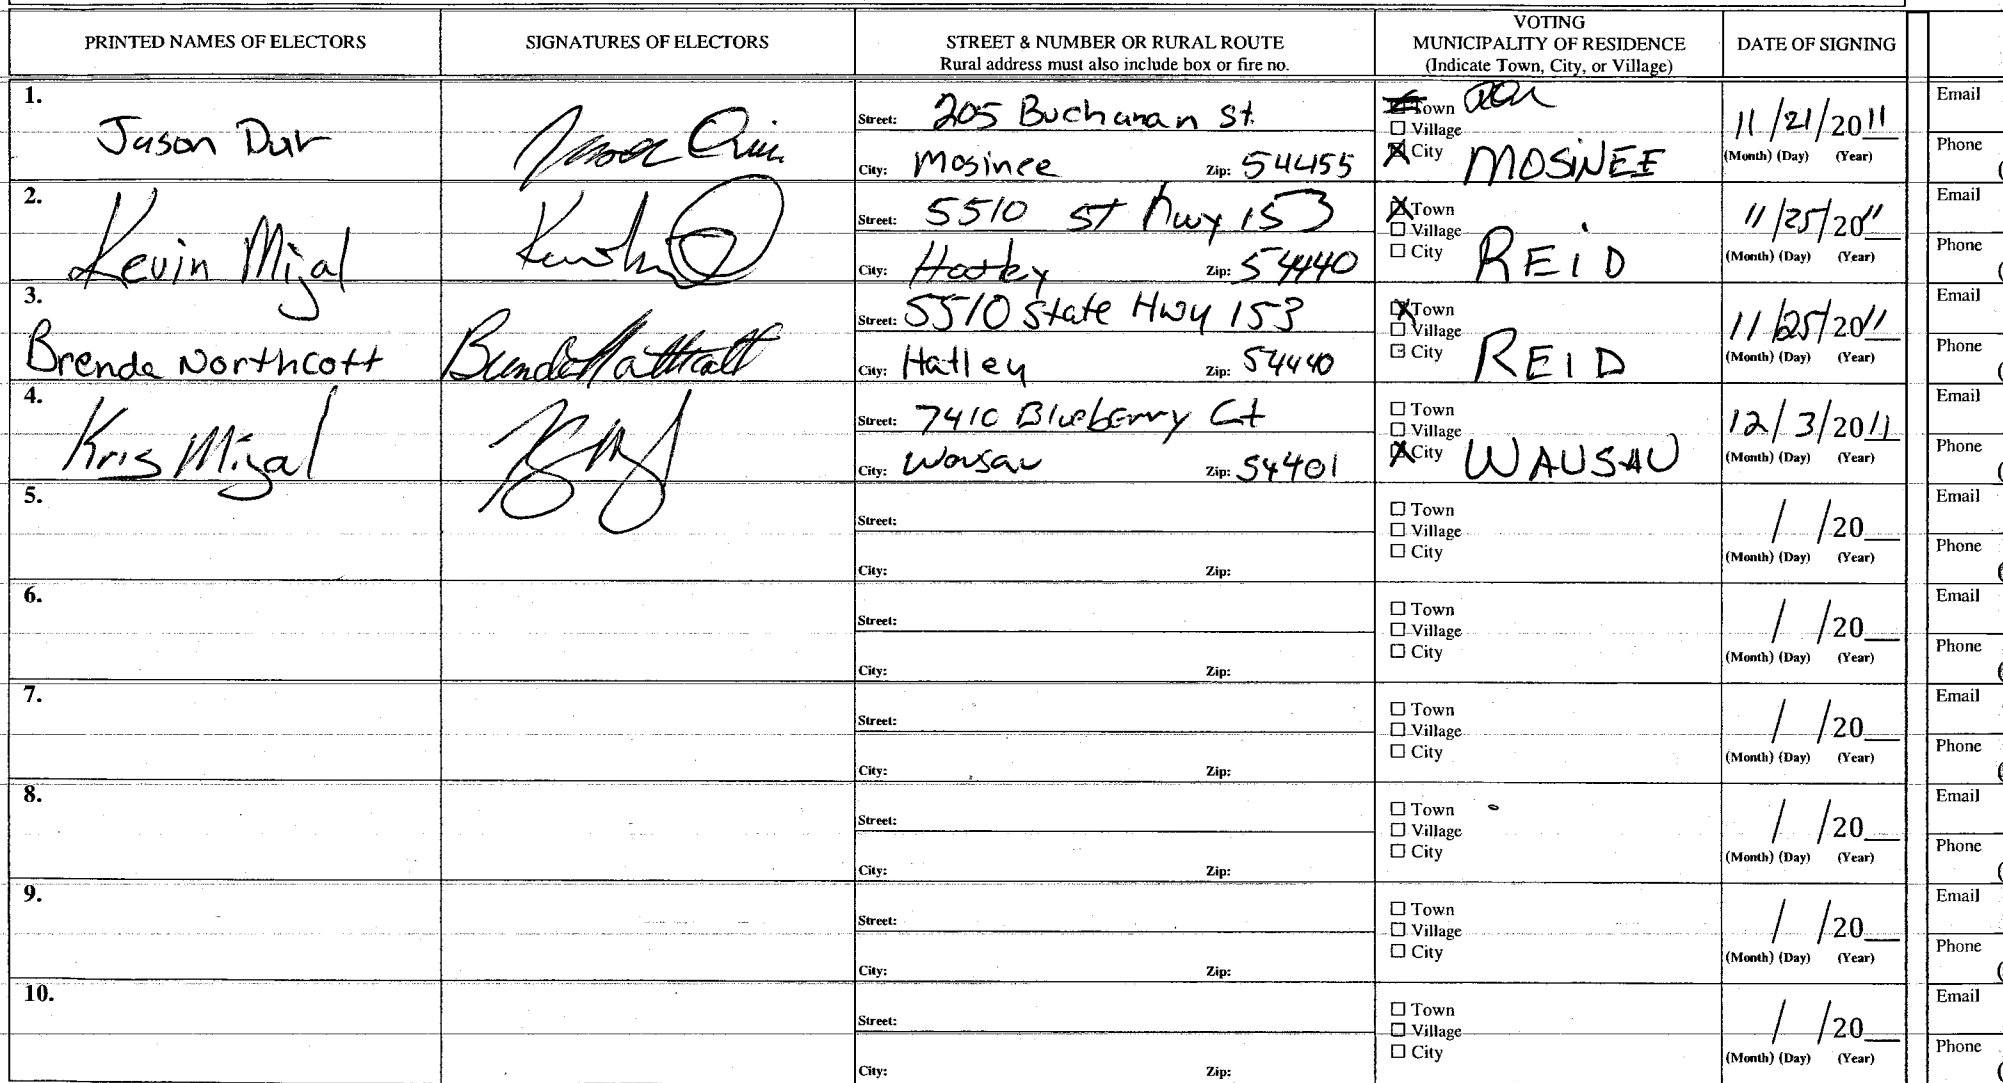 PRINTED NAMES OF ELECTORS
SIGNATURES OF ELECTORS
STREET & NUMBER OR RURAL ROUTE
Rural address must also include box or fire no.
VOTING
MUNICIPALITY OF RESIDENCE
(Indicate Town, City, or Village)
DATE OF SIGNING
1.
Jason Durr
Street: 205 Buchanan St.
City: Mosinee Zip: 54455
Town
☐ Village
☒ City MOSINEE
11/21/2011
(Month) (Day) (Year)
Email
Phone
2.
Kevin Mizal
Street: 5510 St Hwy 153
City: Hatley Zip: 54440
☒ Town
☐ Village
☐ City
REID
11/25/2011
(Month) (Day) (Year)
Email
Phone
3.
Brenda Northcott
Brenda Northcott
Street: 5510 State Hwy 153
City: Hatley Zip: 54440
☒ Town
☐ Village
☐ City
REID
11/25/2011
(Month) (Day) (Year)
Email
Phone
4.
Kris Mizal
Street: 7410 Blueberry Ct
City: Wausau Zip: 54401
☐ Town
☐ Village
☒ City WAUSAU
12/3/2011
(Month) (Day) (Year)
Email
Phone
5.
Street:
City: Zip:
☐ Town
☐ Village
☐ City
/ /20__
(Month) (Day) (Year)
Email
Phone
6.
Street:
City: Zip:
☐ Town
☐ Village
☐ City
/ /20__
(Month) (Day) (Year)
Email
Phone
7.
Street:
City: Zip:
☐ Town
☐ Village
☐ City
/ /20__
(Month) (Day) (Year)
Email
Phone
8.
Street:
City: Zip:
☐ Town
☐ Village
☐ City
/ /20__
(Month) (Day) (Year)
Email
Phone
9.
Street:
City: Zip:
☐ Town
☐ Village
☐ City
/ /20__
(Month) (Day) (Year)
Email
Phone
10.
Street:
City: Zip:
☐ Town
☐ Village
☐ City
/ /20__
(Month) (Day) (Year)
Email
Phone